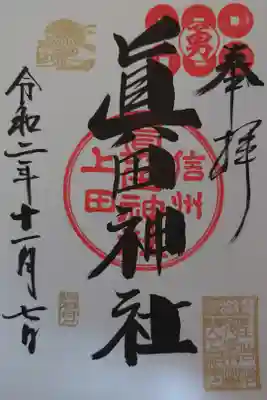 奉拝
勇
眞田神社
信州
上田
眞田神社
令和二年十一月七日